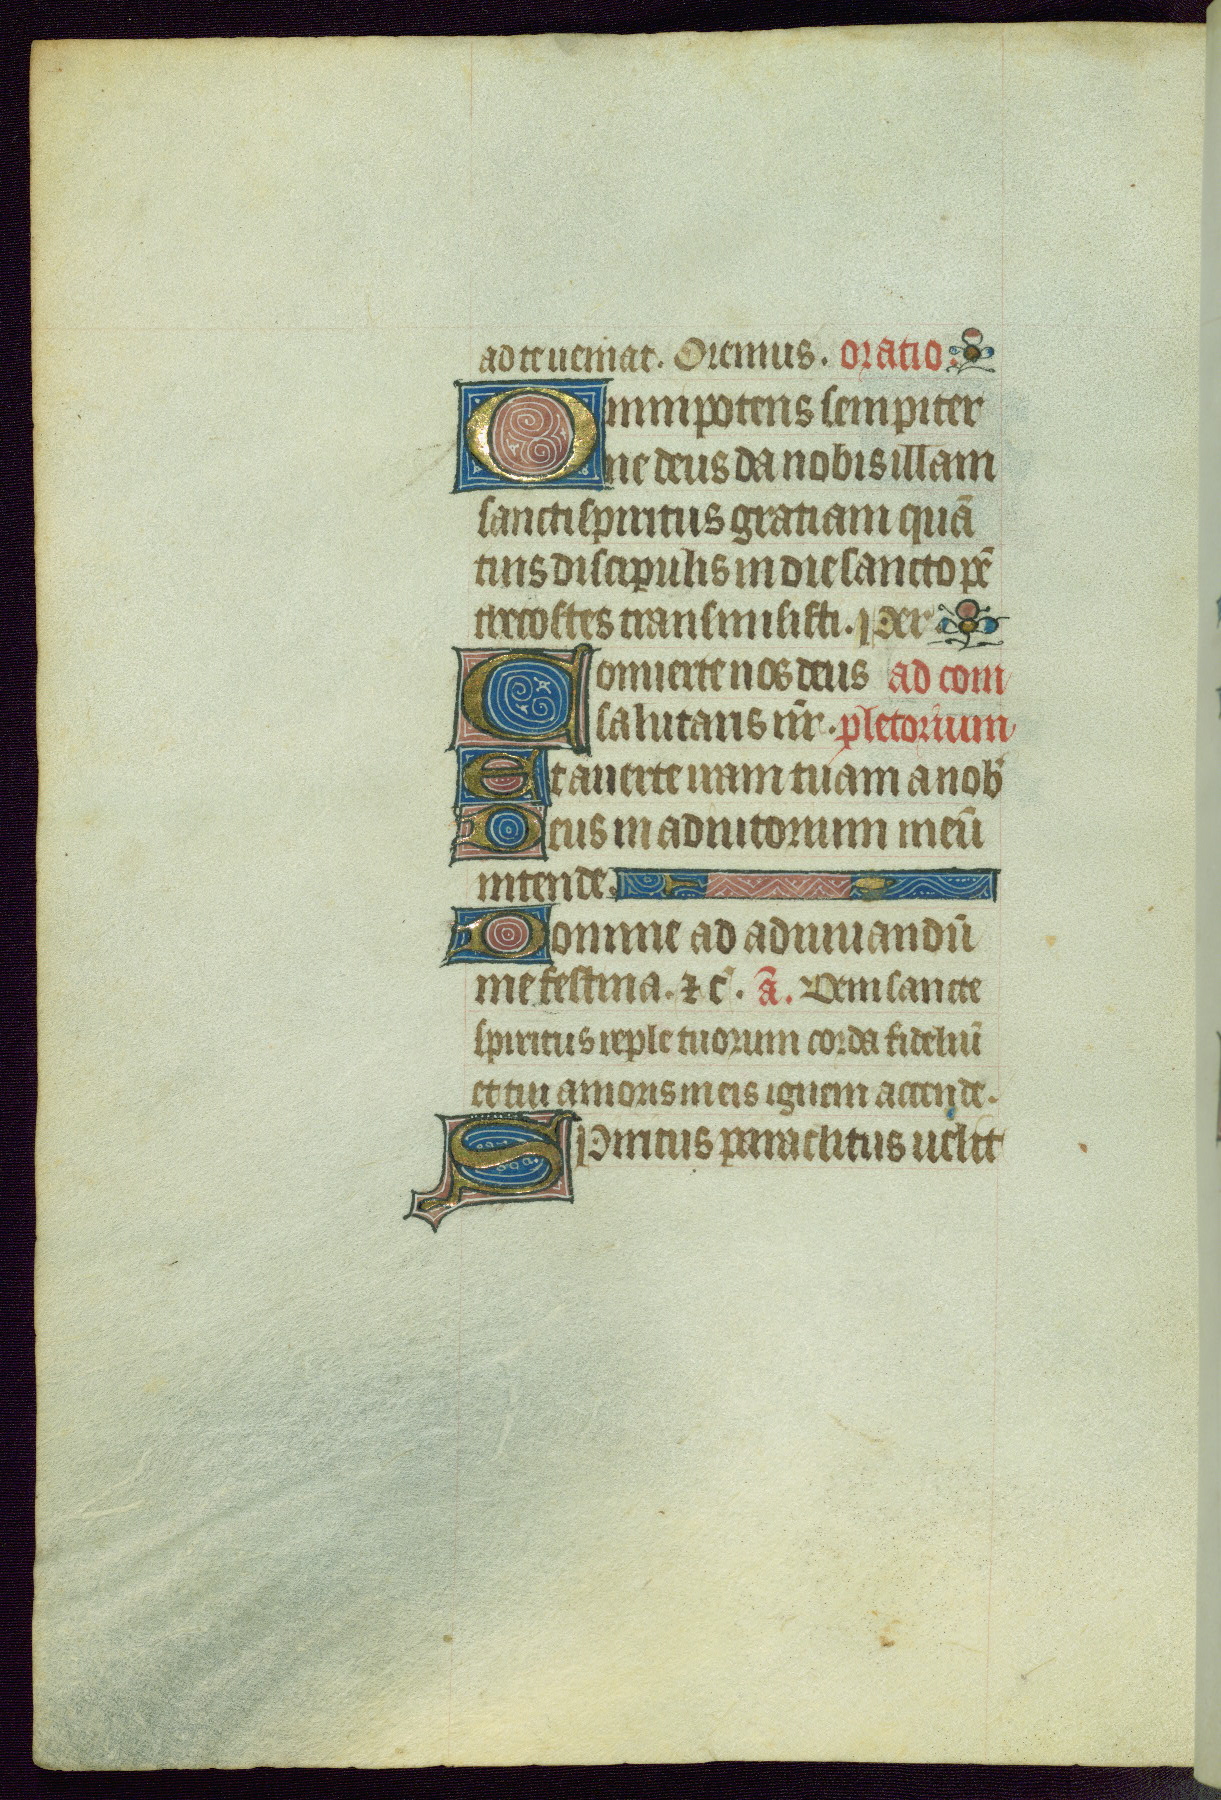 ad te ueniat. Oremus. oratio.
Omnipotens sempiter
ne deus da nobis illam
sancti spiritus gratiam quā
tuis discipulis in die sancto pē
thecostes transmisisti. Per
Conuerte nos deus ad com
salutaris nr̄. pletorium
Et auerte iram tuam a nob
Deus in adiutorium meū
intende.
Domine ad adiuuandū
me festina. ⁊ c̄. ā. Veni sancte
spiritus reple tuorum corda fideliū
et tui amoris in eis ignem accende.
Spiritus paraclitus uelit